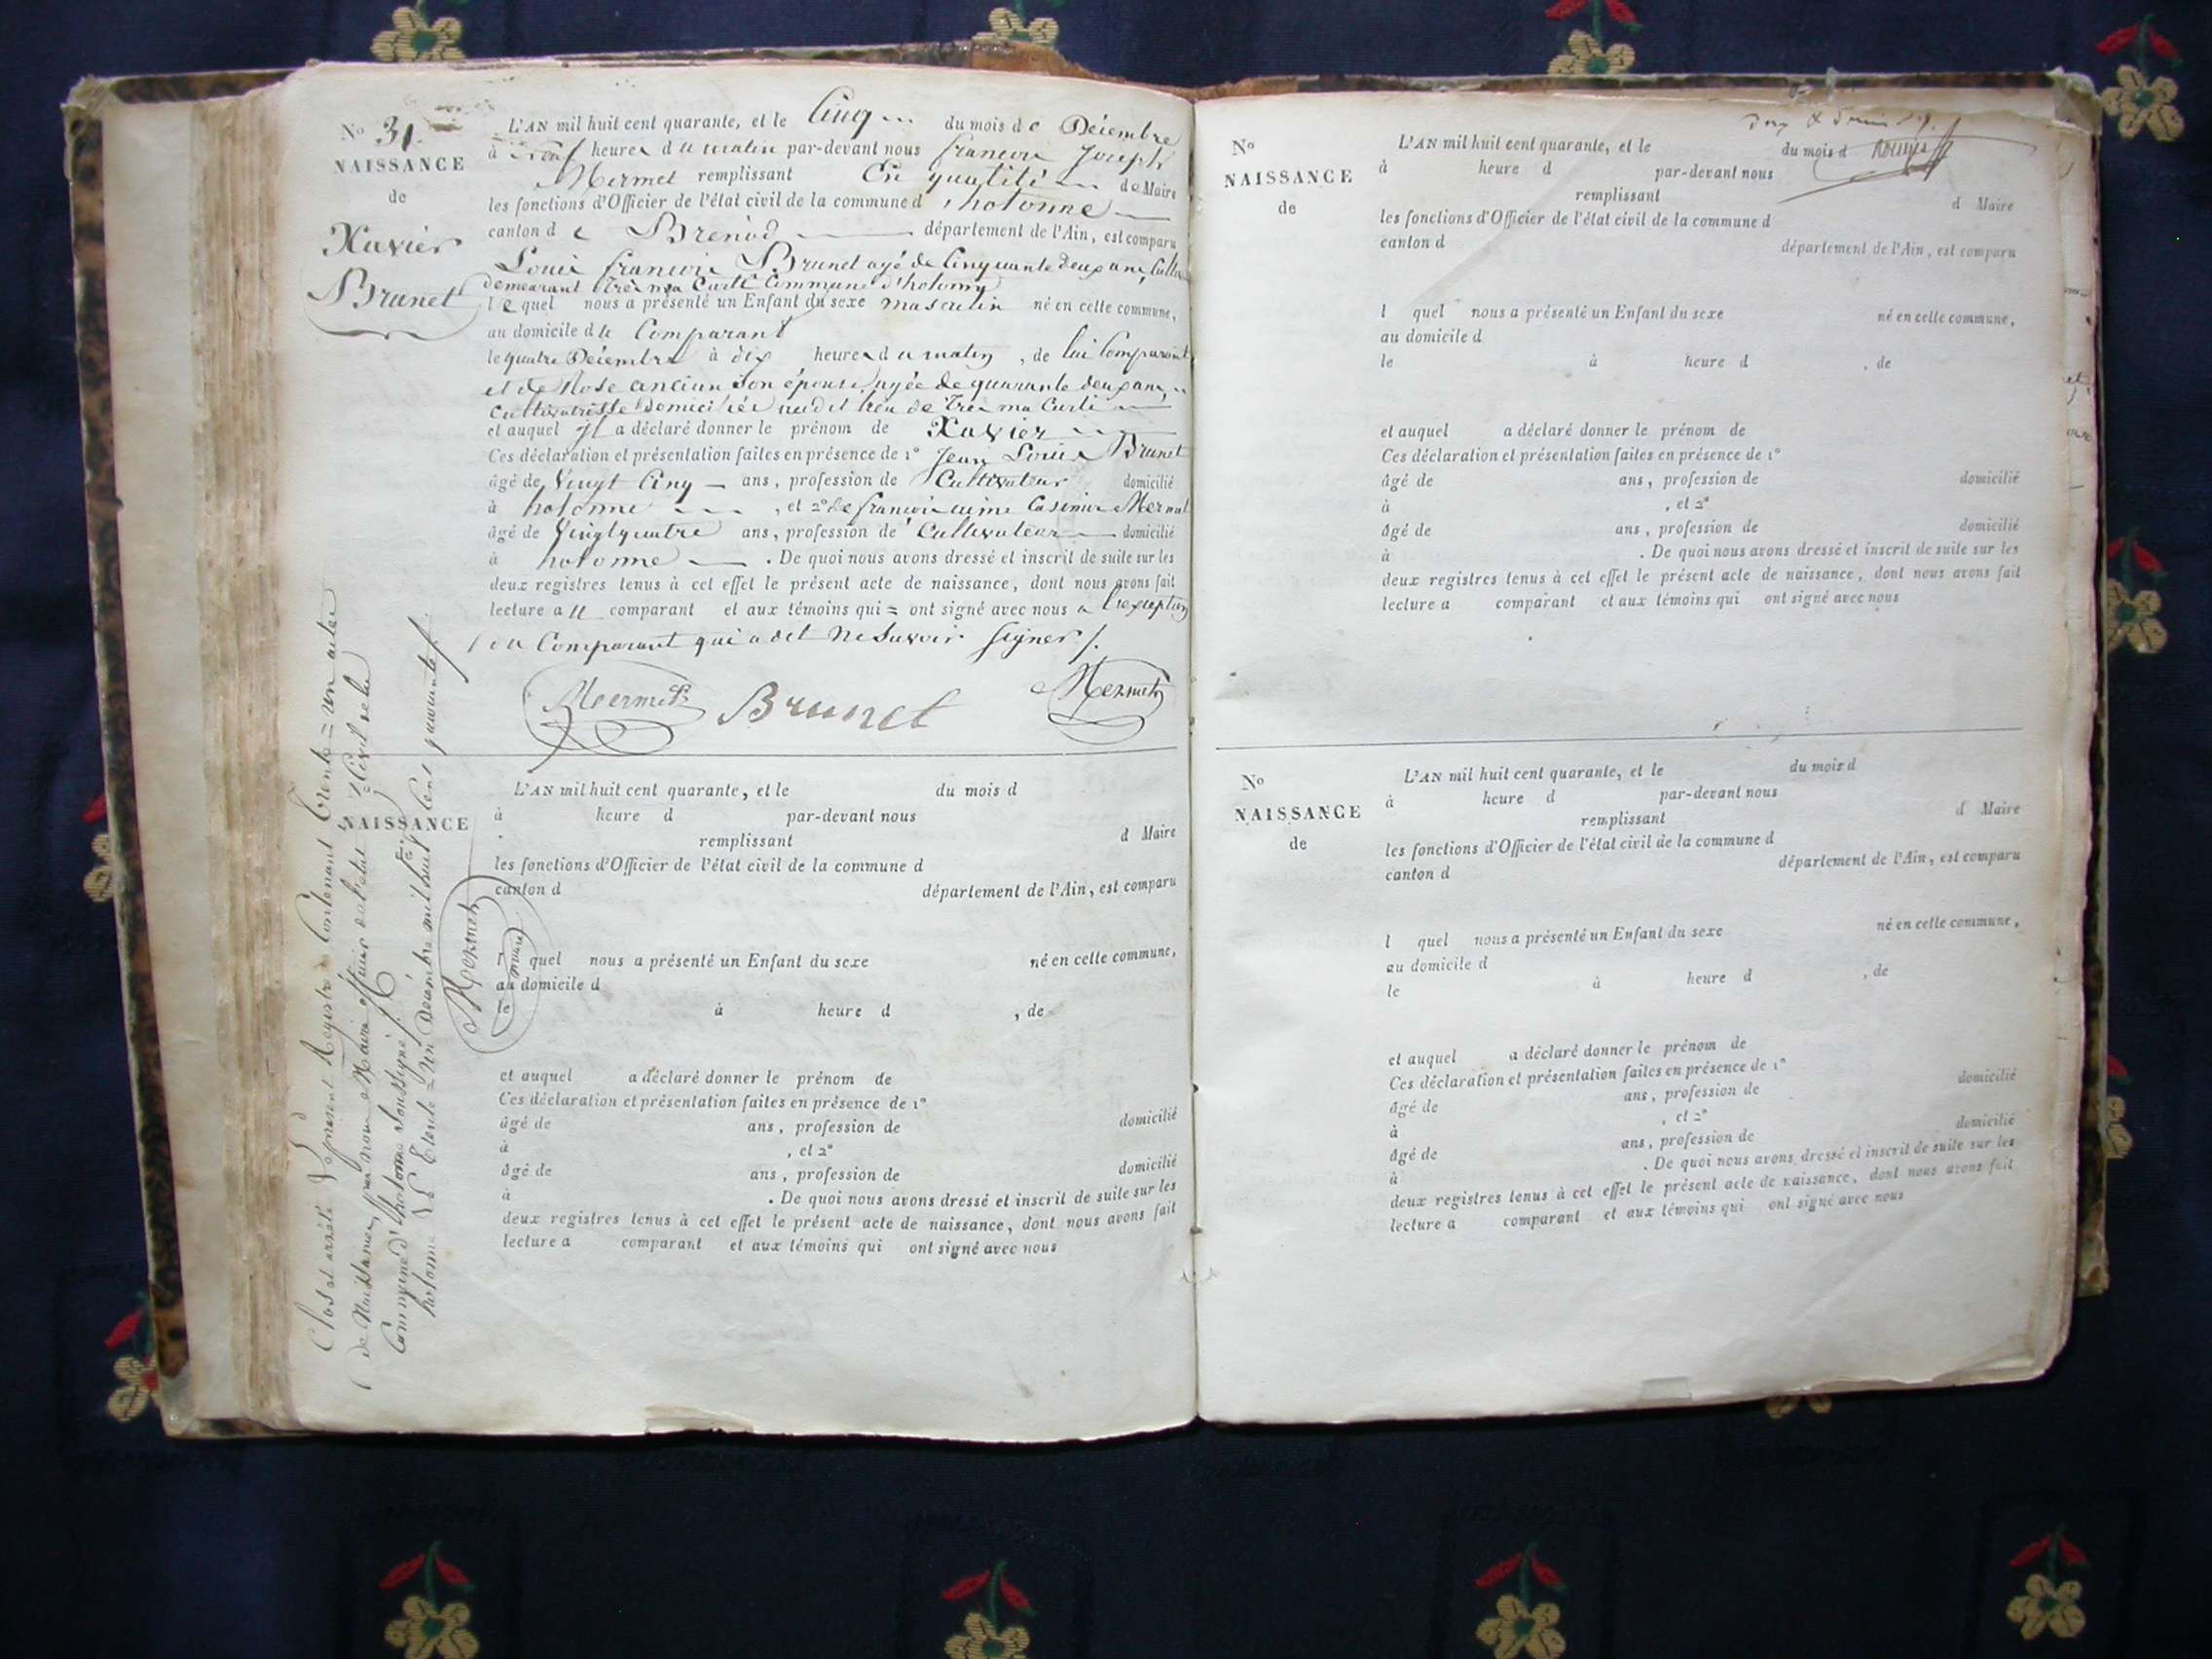 N° 31.
NAISSANCE
de
Xavier
Brunet
L'AN mil huit cent quarante, et le Cinq du mois de Décembre
à neuf heures du matin par-devant nous françois Joseph
Mermet remplissant En qualité de Maire
les fonctions d'Officier de l'état civil de la commune d'hotonne
canton de Brenod département de l'Ain, est comparu
Louis françois Brunet agé de Cinquante deux ans,
demeurant Commune d'hotonne
lequel nous a présenté un Enfant du sexe masculin né en cette commune,
au domicile du Comparant
le quatre Décembre à dix heures du matin, de lui Comparant
et de Rose ancian son épouse agée de quarante deux ans,
Cultivatrisse domiciliée
et auquel il a déclaré donner le prénom de Xavier
Ces déclaration et présentation faites en présence de 1° Jean Louis Brunet
âgé de Vingt Cinq ans, profession de Cultivateur domicilié
à hotonne, et 2° de françois aimé Casimir Mermet
âgé de Vingtquatre ans, profession de Cultivateur domicilié
à hotonne. De quoi nous avons dressé et inscrit de suite sur les
deux registres tenus à cet effet le présent acte de naissance, dont nous avons fait
lecture au comparant et aux témoins qui = ont signé avec nous a l'exception
du Comparant qui a dit ne Savoir Signer /.
Mermet Brunet Mermet
Clos et arrêté Le present Registre Contenant trente = un actes
de Naissances par nous Maire officier de l'état Civil de la
Commune d'hotonne Soussigné
hotonne Le trente = un Décembre mil huit Cent quarante /.
Mermet
maire
NAISSANCE
L'AN mil huit cent quarante, et le du mois d
à heure d par-devant nous
remplissant d Maire
les fonctions d'Officier de l'état civil de la commune d
canton d département de l'Ain, est comparu
l quel nous a présenté un Enfant du sexe né en cette commune,
au domicile d
le à heure d , de
et auquel a déclaré donner le prénom de
Ces déclaration et présentation faites en présence de 1°
âgé de ans, profession de domicilié
à , et 2°
âgé de ans, profession de domicilié
à . De quoi nous avons dressé et inscrit de suite sur les
deux registres tenus à cet effet le présent acte de naissance, dont nous avons fait
lecture a comparant et aux témoins qui ont signé avec nous
N°
NAISSANCE
de
L'AN mil huit cent quarante, et le du mois d
à heure d par-devant nous
remplissant d Maire
les fonctions d'Officier de l'état civil de la commune d
canton d département de l'Ain, est comparu
l quel nous a présenté un Enfant du sexe né en cette commune,
au domicile d
le à heure d , de
et auquel a déclaré donner le prénom de
Ces déclaration et présentation faites en présence de 1°
âgé de ans, profession de domicilié
à , et 2°
âgé de ans, profession de domicilié
à . De quoi nous avons dressé et inscrit de suite sur les
deux registres tenus à cet effet le présent acte de naissance, dont nous avons fait
lecture a comparant et aux témoins qui ont signé avec nous
N°
NAISSANCE
de
L'AN mil huit cent quarante, et le du mois d
à heure d par-devant nous
remplissant d Maire
les fonctions d'Officier de l'état civil de la commune d
canton d département de l'Ain, est comparu
l quel nous a présenté un Enfant du sexe né en cette commune,
au domicile d
le à heure d , de
et auquel a déclaré donner le prénom de
Ces déclaration et présentation faites en présence de 1°
âgé de ans, profession de domicilié
à , et 2°
âgé de ans, profession de domicilié
à . De quoi nous avons dressé et inscrit de suite sur les
deux registres tenus à cet effet le présent acte de naissance, dont nous avons fait
lecture a comparant et aux témoins qui ont signé avec nous